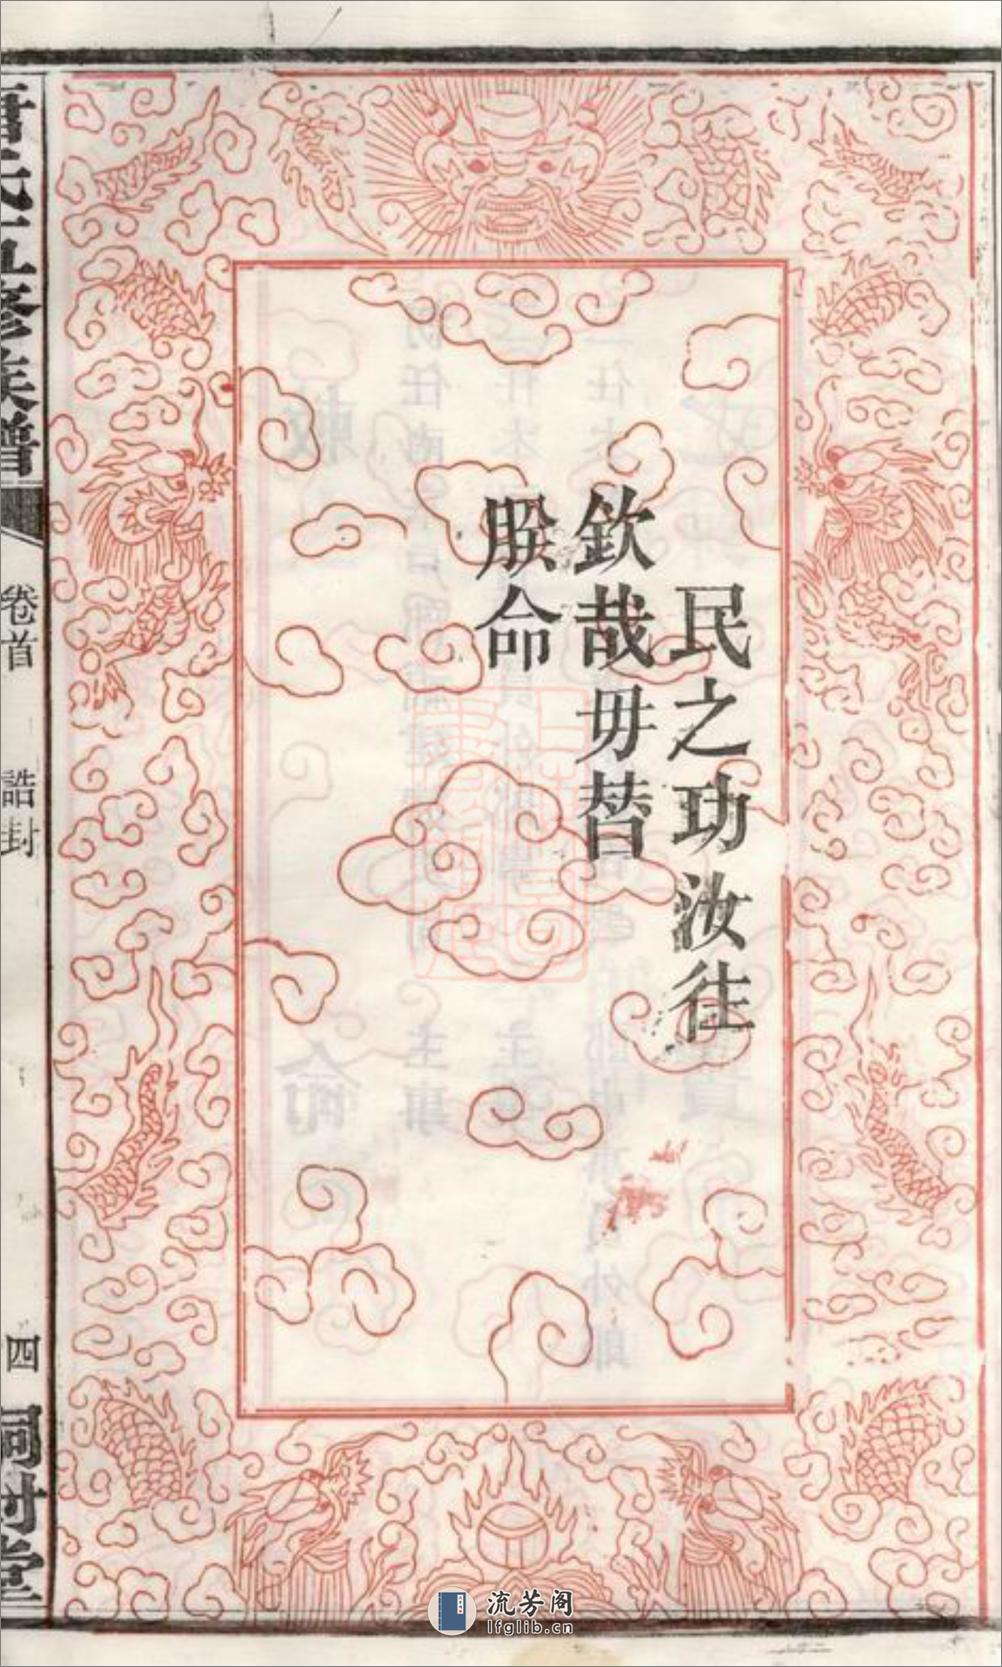 民之功汝往
欽哉毋替
朕命
五修族譜
卷首
誥封
四
流芳阁
lfglib.cn